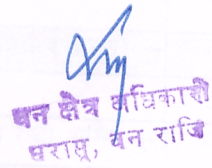 वन क्षेत्र अधिकारी
धरासू, वन राजि